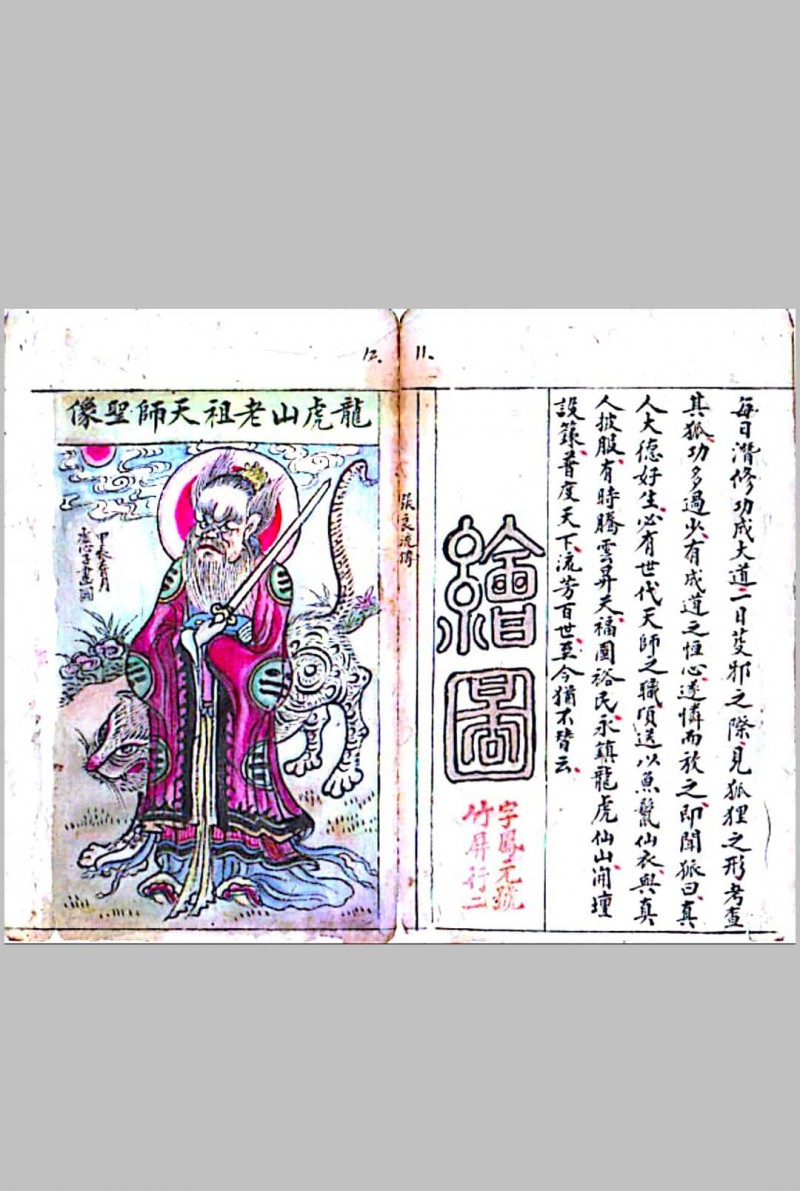 11.
每日潛修功成大道一日芟邪之際見狐狸之形考查
其狐功多過少有成道之恒心遂憐而放之即聞狐曰真
人大德好生必有世代天師之職項送以魚鬣仙衣與真
人披服有時騰雲昇天福國裕民永鎮龍虎仙山開壇
設籙普度天下流芳百世至今猶不替云
繪圖
字鳳元號
竹屏行二
12.
龍虎山老祖天師聖像
甲辰年月
畫圖